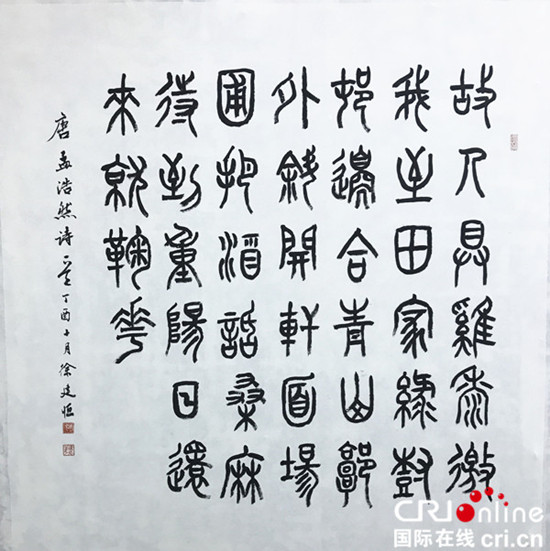 故人具雞黍邀
我至田家綠樹
邨邊合青山郭
外斜開軒面場
圃把酒話桑麻
待到重陽日還
來就鞠花
唐孟浩然诗一首丁酉十月徐建恒
CRIonline
国际在线 cri.cn